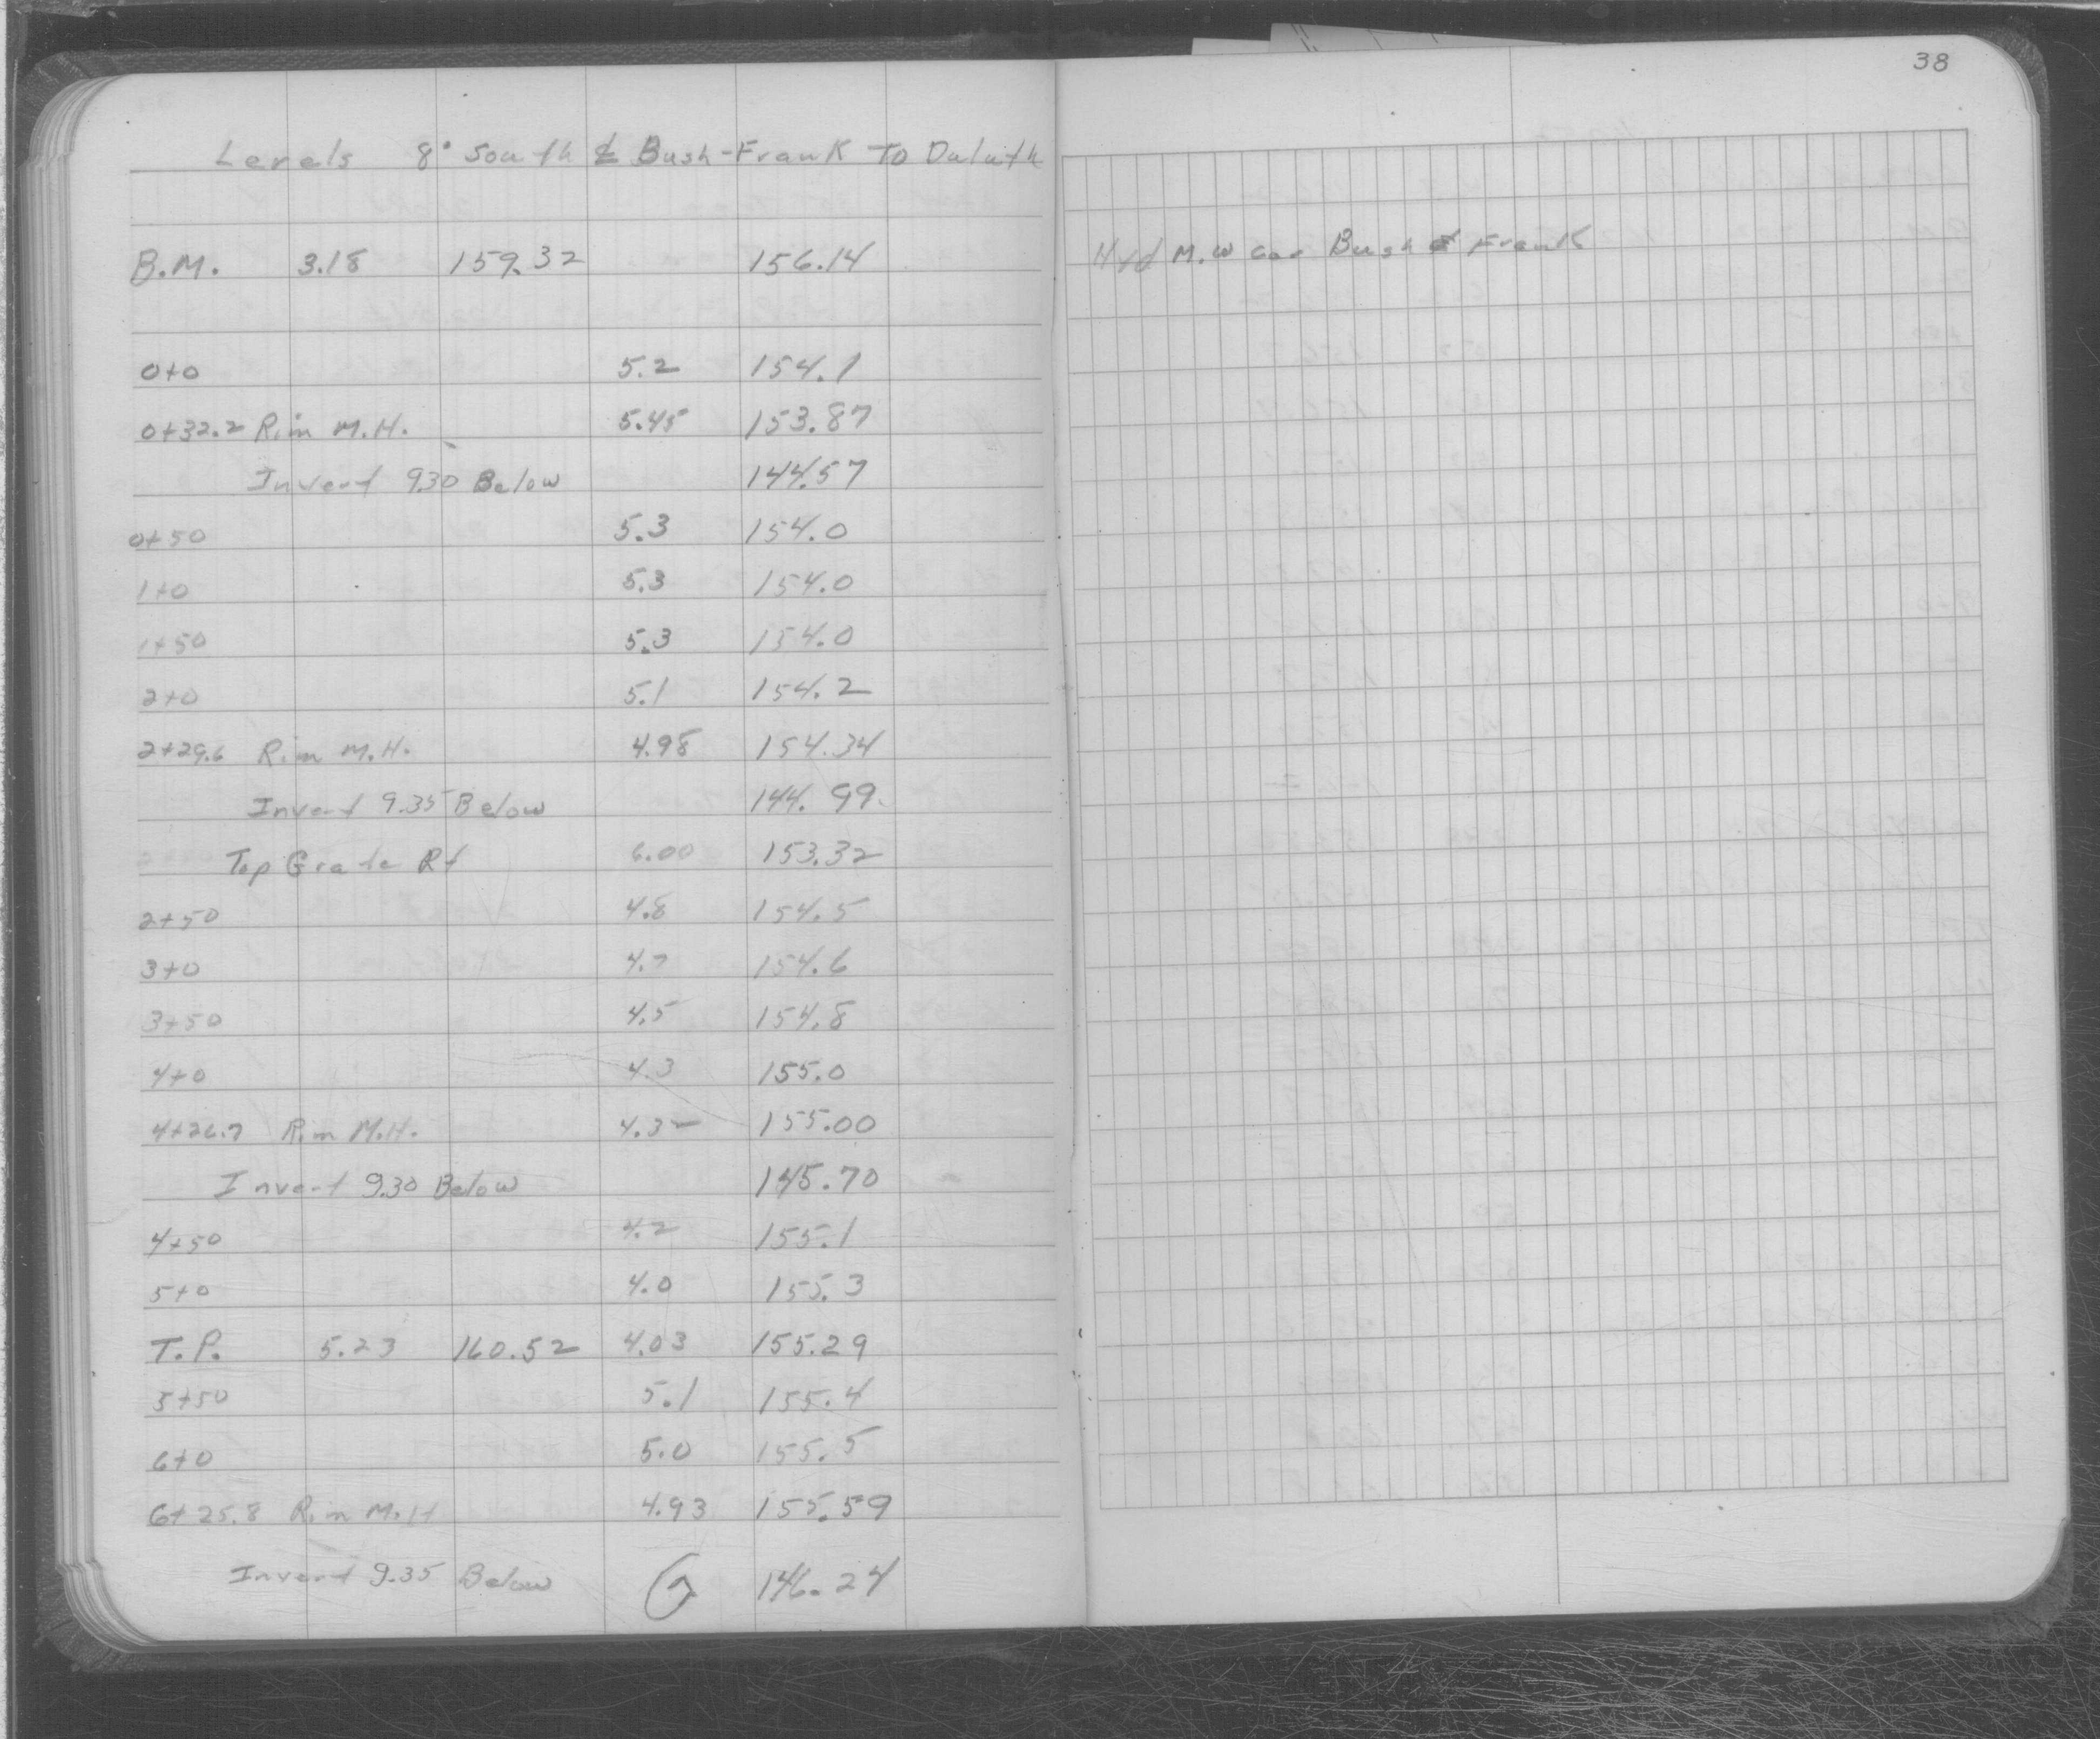 38
Levels 8° South ℄ Bush-Frank To Duluth
B.M. 3.18 159.32 156.14
Hyd N.W Cor Bush & Frank
0+0 5.2 154.1
0+32.2 Rim M.H. 5.45 153.87
Invert 9.30 Below 144.57
0+50 5.3 154.0
1+0 5.3 154.0
1+50 5.3 154.0
2+0 5.1 154.2
2+29.6 Rim M.H. 4.98 154.34
Invert 9.35 Below 144.99
Top Grate Rt 6.00 153.32
2+50 4.8 154.5
3+0 4.7 154.6
3+50 4.5 154.8
4+0 4.3 155.0
4+26.7 Rim M.H. 4.32 155.00
Invert 9.30 Below 145.70
4+50 4.2 155.1
5+0 4.0 155.3
T.P. 5.23 160.52 4.03 155.29
5+50 5.1 155.4
6+0 5.0 155.5
6+25.8 Rim M.H 4.93 155.59
Invert 9.35 Below 146.24